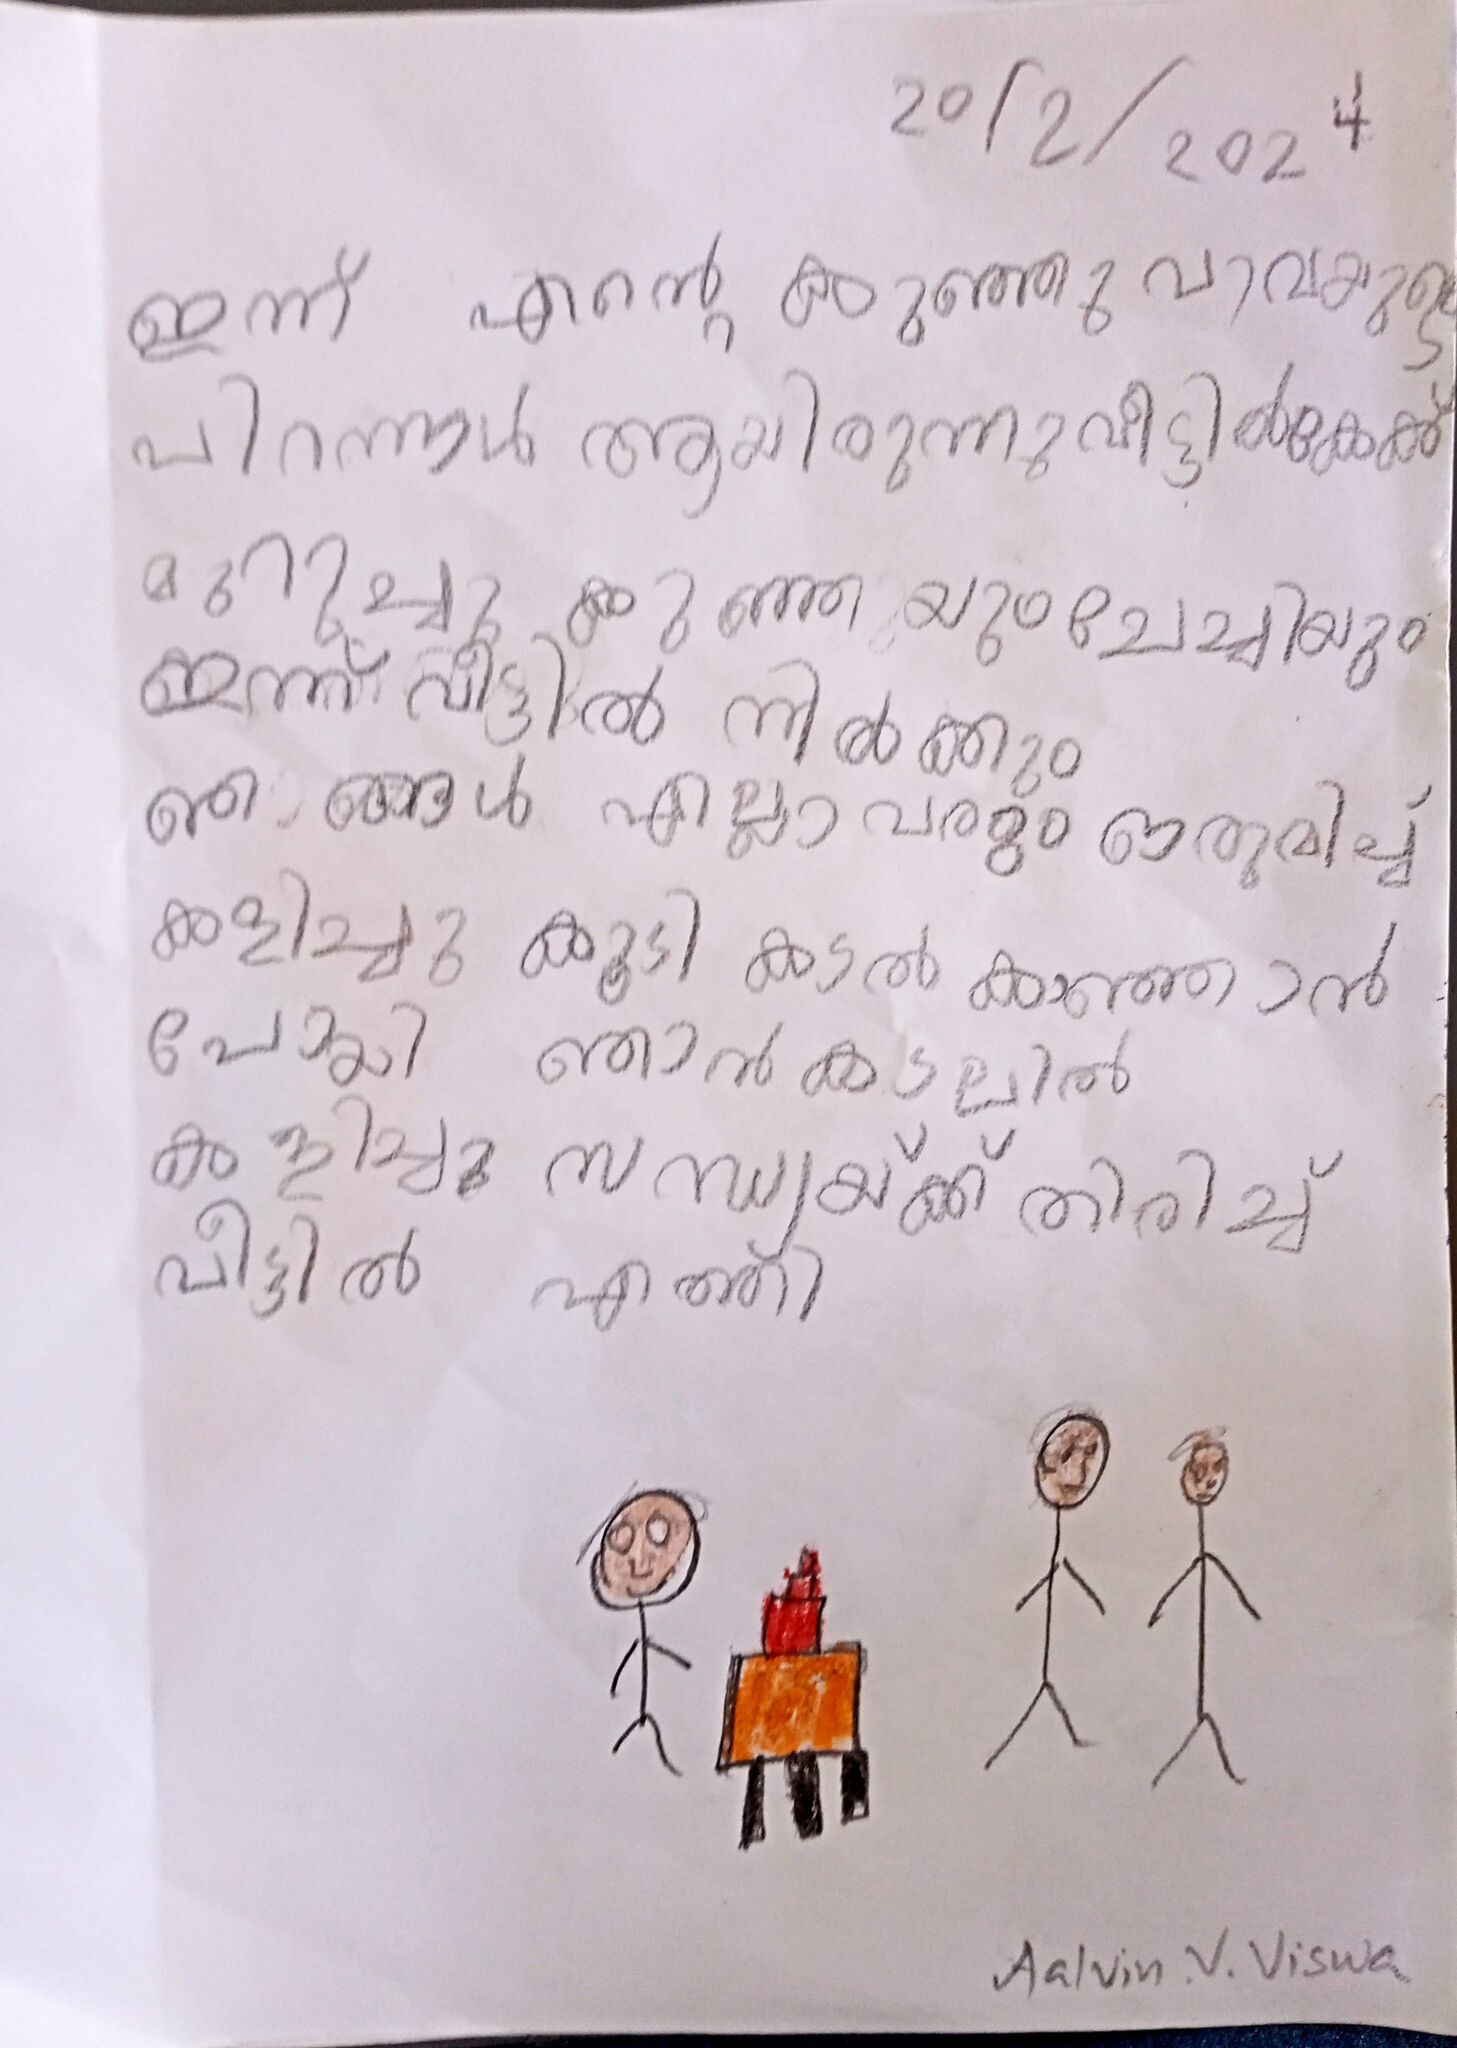 20/2/2024
ഇന്ന് എന്റെ കുഞ്ഞു വാവയുടെ
പിറന്നാൾ ആയിരുന്നു വീട്ടിൽ കേക്ക്
മുറിച്ചു കുഞ്ഞയും ചേച്ചിയും
ഇന്ന് വീട്ടിൽ നിൽക്കും
ഞങ്ങൾ എല്ലാവരും ഒരുമിച്ച്
കളിച്ചു കൂടി കടൽ കാണാൻ
പോയി ഞാൻ കടലിൽ
കളിച്ചു സന്ധ്യയ്ക്ക് തിരിച്ച്
വീട്ടിൽ എത്തി
Aalvin.V.Viswa